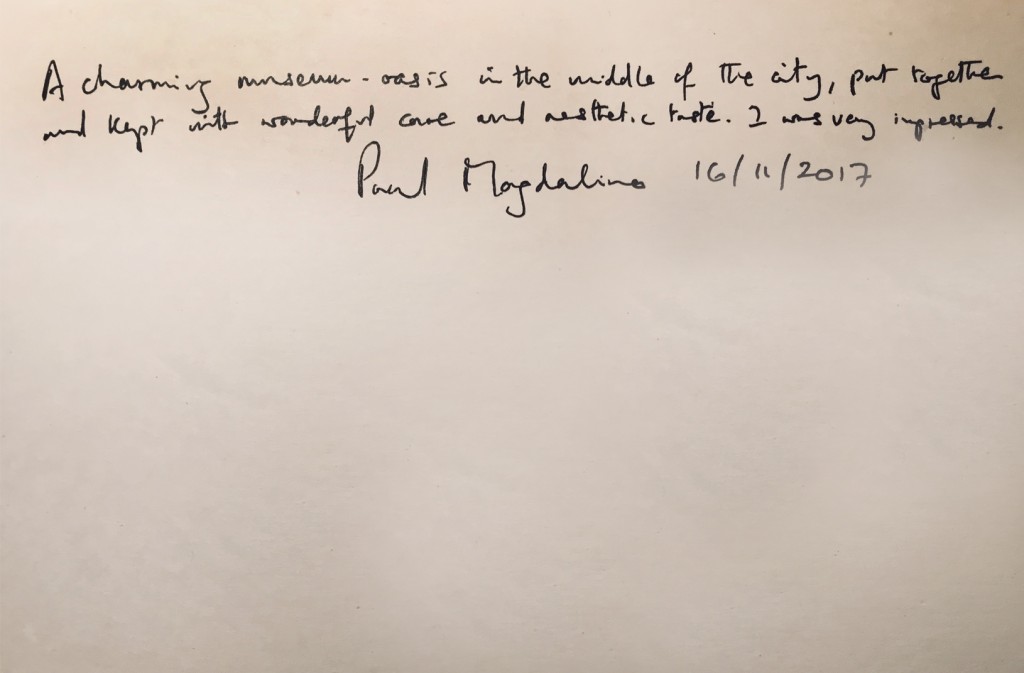 A charming museum-oasis in the middle of the city, put together
and kept with wonderful care and aesthetic taste. I was very impressed.
Paul Magdalino 16/11/2017